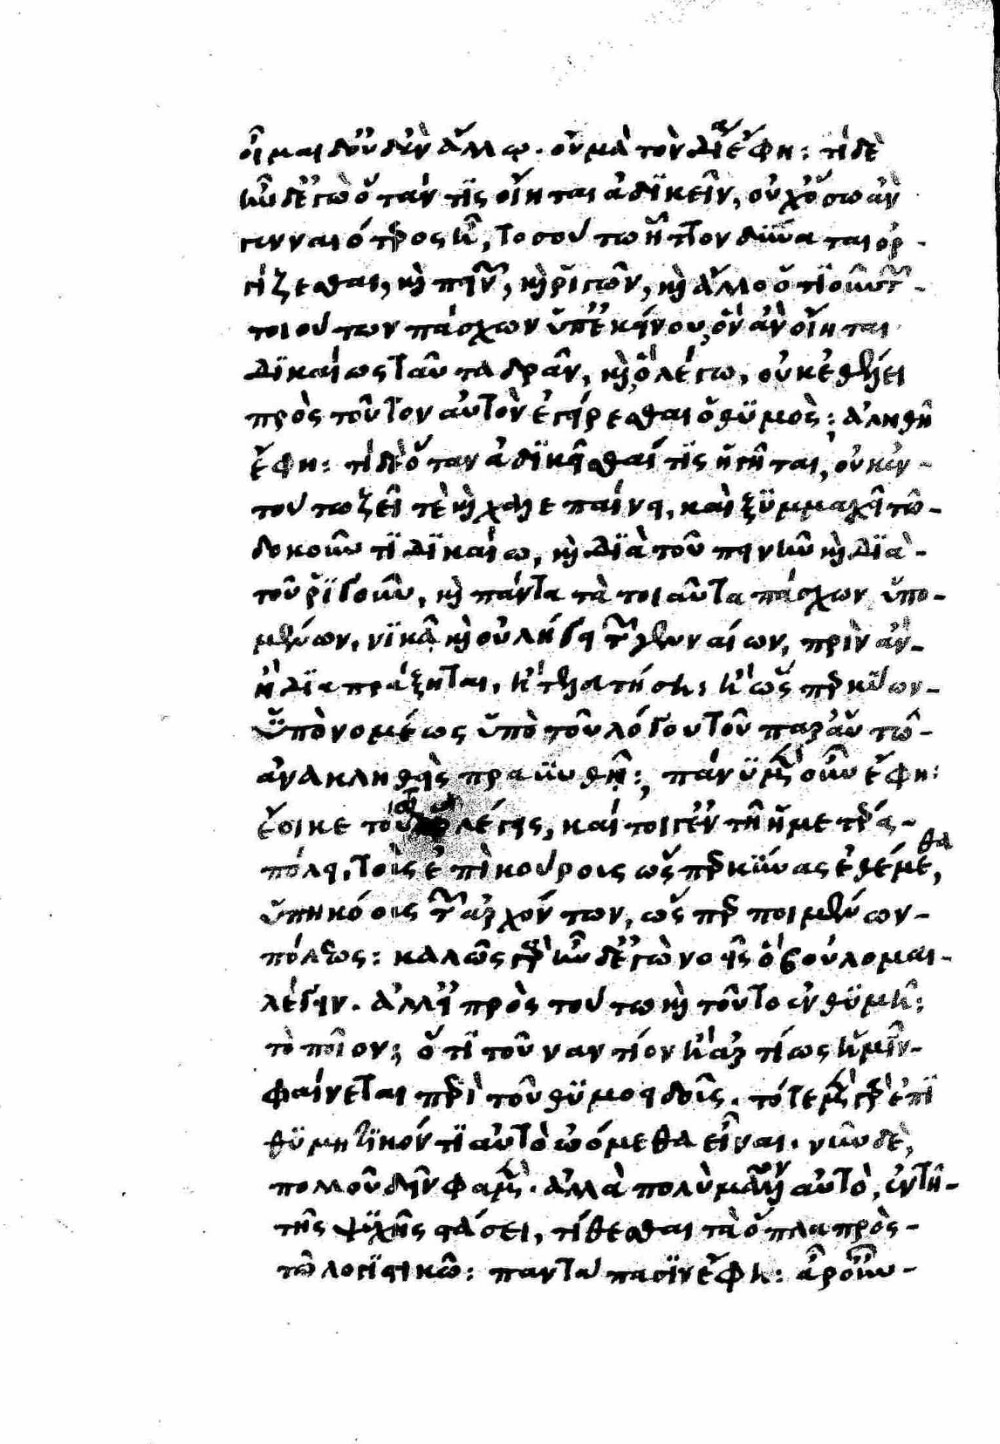 οἶμαι δ' οὐδ' ἐν ἄλλῳ. οὐ μὰ τὸν δία ἔφη: τί δὲ
ἦν δ' ἐγὼ ὅταν τίς οἴηται ἀδικεῖν, οὐχ ὅσω ἂν
γενναιότερος ᾖ, τοσούτω ἧττον δύναται ὀρ-
γίζεσθαι, καὶ πεινῶν, καὶ ῥιγῶν, καὶ ἄλλο ὁτιοῦν τῶν
τοιούτων πάσχων ὑπ' ἐκείνου, ὃν ἂν οἴηται
δικαίως ταῦτα δρᾶν, καὶ ὃ λέγω, οὐκ ἐθέλει
πρὸς τοῦτον αὐτὸν ἐγείρεσθαι ὁ θυμὸς: ἀληθῆ
ἔφη: τί δὲ ὅταν ἀδικεῖσθαί τις ἡγῆται, οὐκ ἐν
τούτω ζεῖ τὲ καὶ χαλεπαίνει, καὶ ξυμμαχεῖ τῶ
δοκοῦντι δικαίω, καὶ διὰ τοῦ πεινῆν καὶ διὰ
τοῦ ῥιγοῦν, καὶ πάντα τὰ τοιαῦτα πάσχων ὑπο-
μένων, νικᾶ καὶ οὐ λήγει τῶν γενναίων, πρὶν ἂν
ἢ διαπράξηται, ἢ τελευτήση, ἢ ὥσπερ κύων
ὑπὸ νομέως ὑπὸ τοῦ λόγου τοῦ παρ' αὐτῶ
ἀνακληθεὶς πραϋνθῆ; πάνυ μὲν οὖν ἔφη:
ἔοικε τούτω ὃ λέγεις, καί τοι γ' ἐν τῆ ἡμετέρα
πόλει, τοὺς ἐπικούρους ὥσπερ κύνας ἐθέμεθα,
ὑπηκόους τῶν ἀρχόντων, ὥσπερ ποιμένων
πόλεως: καλῶς γὰρ ἦν δ' ἐγὼ νοεῖς ὃ βούλομαι
λέγειν. ἀλλ' εἰ πρὸς τούτω καὶ τοῦτο ἐνθυμῆ;
τὸ ποῖον; ὅτι τοὐναντίον ἢ ἀρτίως ἡμῖν
φαίνεται περὶ τοῦ θυμοειδοῦς. τότε μὲν γὰρ ἐπι
θυμητικόν τι αὐτὸ ᾠόμεθα εἶναι. νῦν δὲ,
πολλοῦ δεῖν φαμὲν. ἀλλὰ πολὺ μᾶλλον αὐτὸ, ἐν τῆ
τῆς ψυχῆς στάσει, τίθεσθαι τὰ ὅπλα πρὸς
τῶ λογιστικῶ: πανταπασιν ἔφη: ἆρ' οὖν